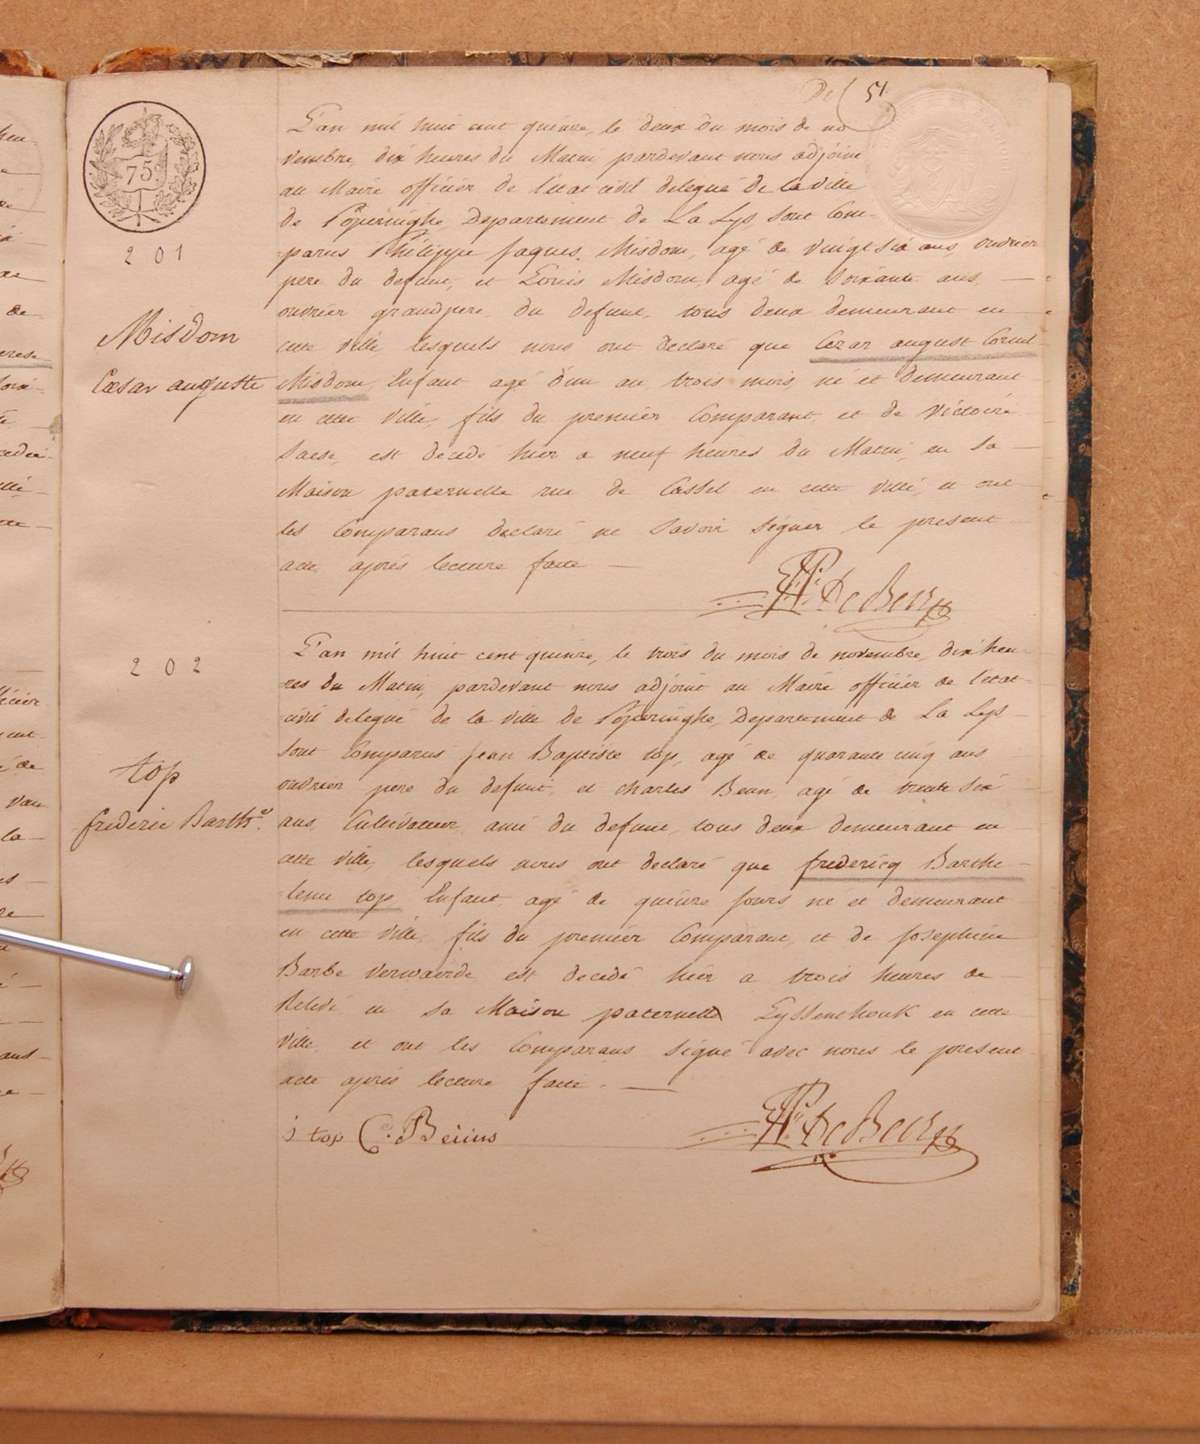 51
75
201
Misdom
Cæsar auguste
L'an mil huit cent quinze, le deux du mois de no
vembre dix heures du Matin pardevant nous adjoint
au Maire officier de l'etat civil delegué de la ville
de Poperinghe Departement de La Lys sont Com-
parus Philippe Jaques Misdom, agé de vingt six ans, ouvrier
pere du defunt, et Louis Misdom agé de soixante ans
ouvrier grandpere du defunt, tous deux demeurant en
cette ville lesquels nous ont declaré que Cezar august Corneil
Misdom, Enfant agé d'un an trois mois, né et demeurant
en cette ville, fils du premier Comparant, et de Victoire
Saese, est decedé hier a neuf heures du Matin, en sa
Maison paternelle rue de Cassel en cette ville, et ont
les Comparans declaré ne savoir signer le present
acte après lecture faite
De Beir
202
top
frederic Barth.
L'an mil huit cent quinze, le trois du mois de novembre dix heu-
res du Matin, pardevant nous adjoint au Maire officier de l'etat
civil delegué de la ville de Poperinghe, Departement de La Lys
sont Comparus Jean Baptiste top, agé de quarante cinq ans
ouvrier pere du defunt, et charles Beun agé de trente six
ans, Cultivateur, ami du defunt, tous deux demeurant en
cette ville, lesquels nous ont declaré que fredericq Barthe-
lemi top, Enfant agé de quinze jours né et demeurant
en cette ville, fils du premier Comparant, et de Josephine
Barbe Verwaerde est decedé hier a trois heures de
Relevé en sa Maison paternelle Eyssenhouk en cette
ville, et ont les Comparans signé avec nous le present
acte après lecture faite.
j top C. Beiins
De Beir